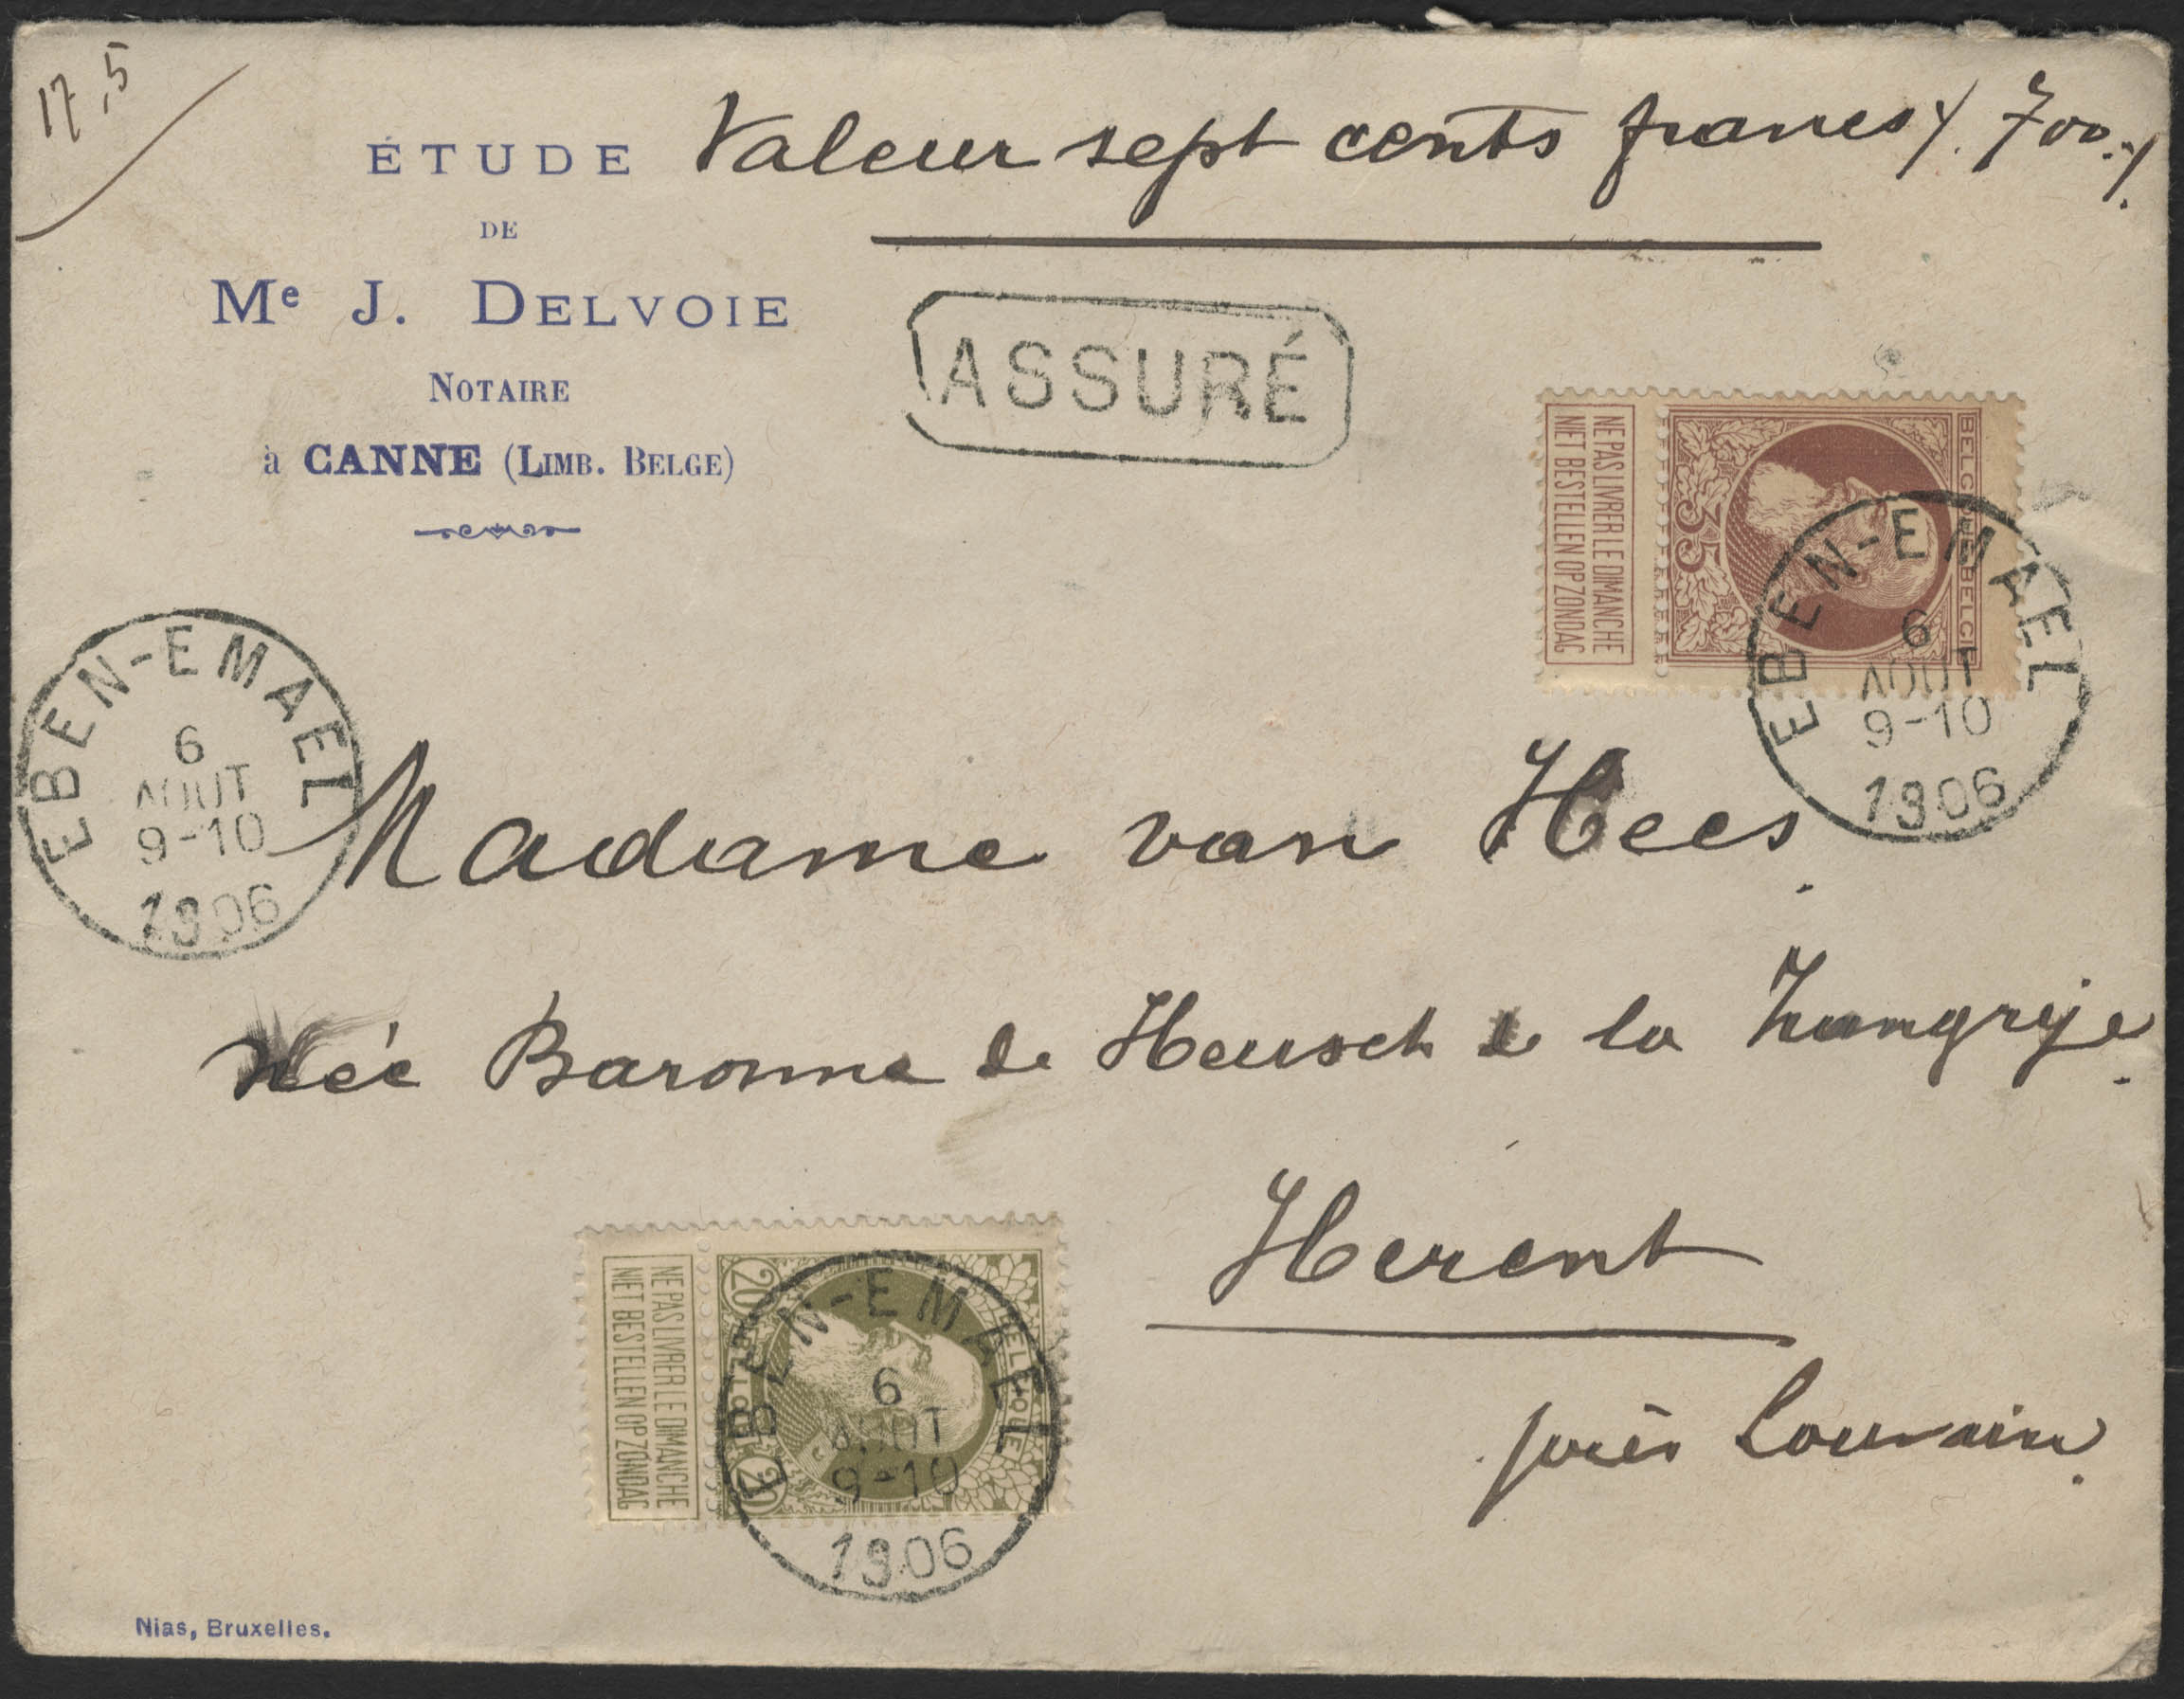 17,5
Valeur sept cents francs /. 700.-/.
ÉTUDE
DE
Me J. DELVOIE
NOTAIRE
à CANNE (LIMB. BELGE)
ASSURÉ
NE PAS LIVRER LE DIMANCHE
NIET BESTELLEN OP ZONDAG
35
BELGIQUE BELGIE
EBEN-EMAEL
6
AOUT
9-10
1906
EBEN-EMAEL
6
AOUT
9-10
1906
Madame van Hees.
née Baronne de Heusch de la Zangrije.
Herent
près Louvain.
NE PAS LIVRER LE DIMANCHE
NIET BESTELLEN OP ZONDAG
20
20
BELGIQUE
EBEN-EMAEL
6
AOUT
9-10
1906
Nias, Bruxelles.